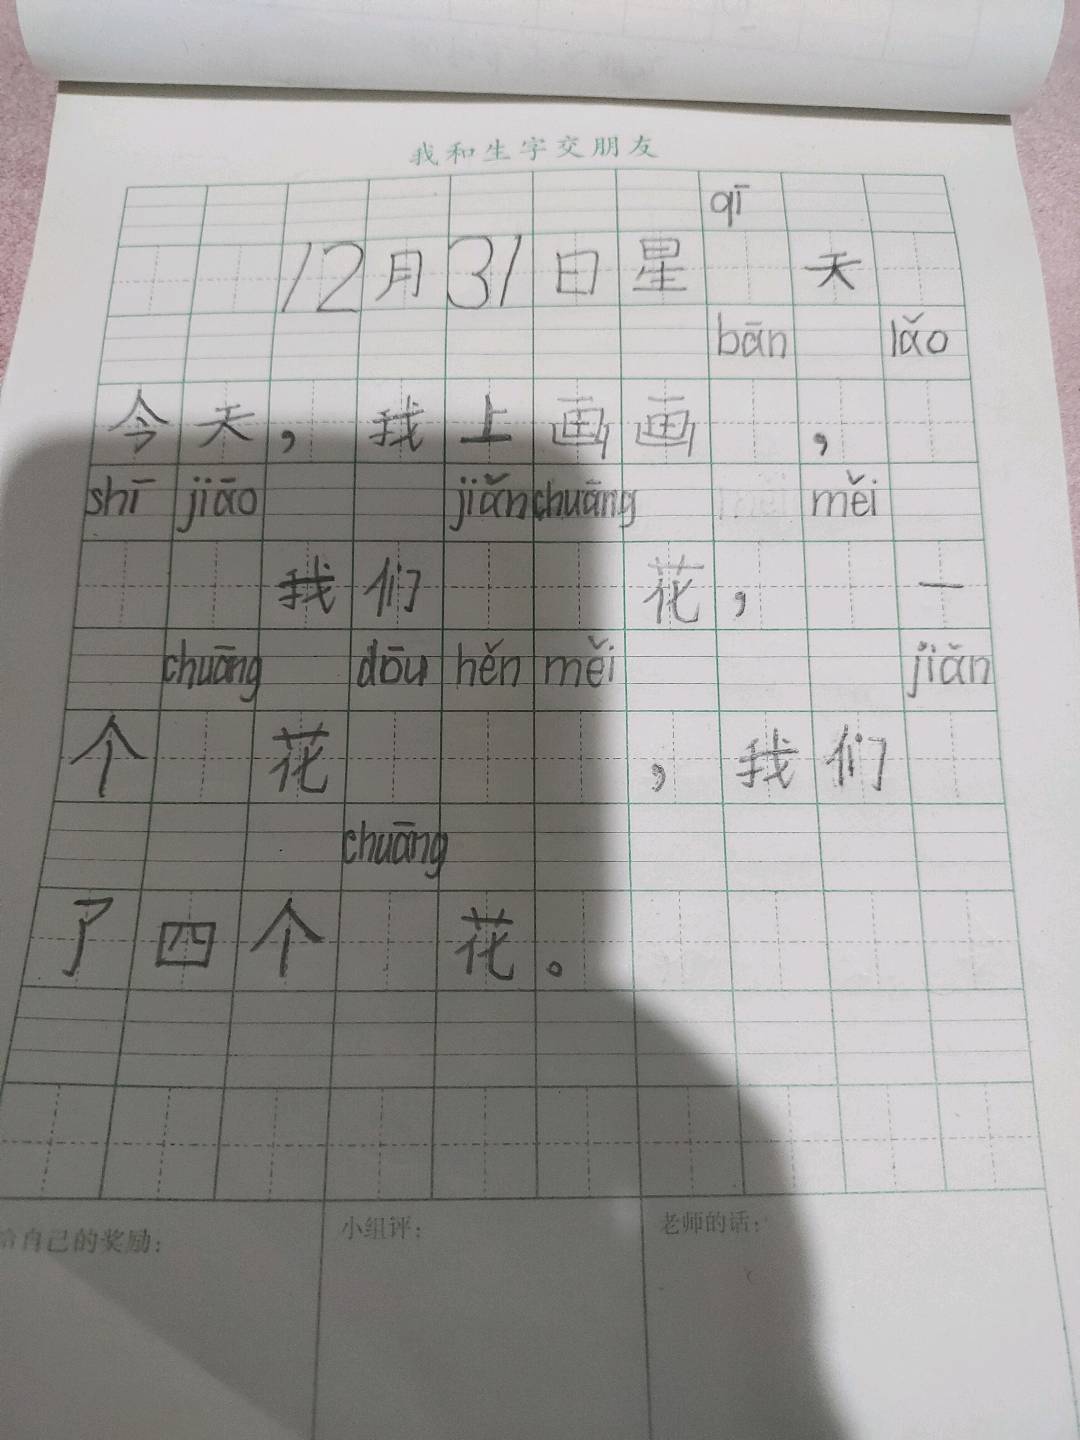 我和生字交朋友
qī
12月31日星 天
bān lǎo
今天，我上画画 ，
shī jiāo jiǎn chuāng měi
我们 花， 一
chuāng dōu hěn měi jiǎn
个 花 ，我们
chuāng
了四个 花。
给自己的奖励： 小组评： 老师的话：